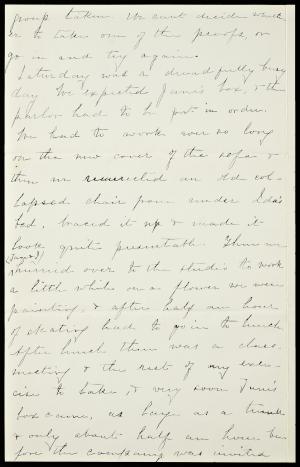 group taken. We can't decide whether
to take one of the proofs, or
go in and try again.
Saturday was a dreadfully busy
day. We expected June's box, & the
parlor had to be put in order.
We had to work ever so long
on the new cover of the sofa &
then we resurrected an old col-
lapsed chair from under Ida's
bed, braced it up & made it
look quite presentable. Then we
(Inger & I)
hurried over to the studio to work
a little while on a flower we were
painting, & after half an hour
of skating had to go in to lunch.
After lunch there was a class-
meeting & the rest of my exer-
cise to take, & very soon June's
box came, as large as a trunk
& only about half an hour be-
fore the company was invited